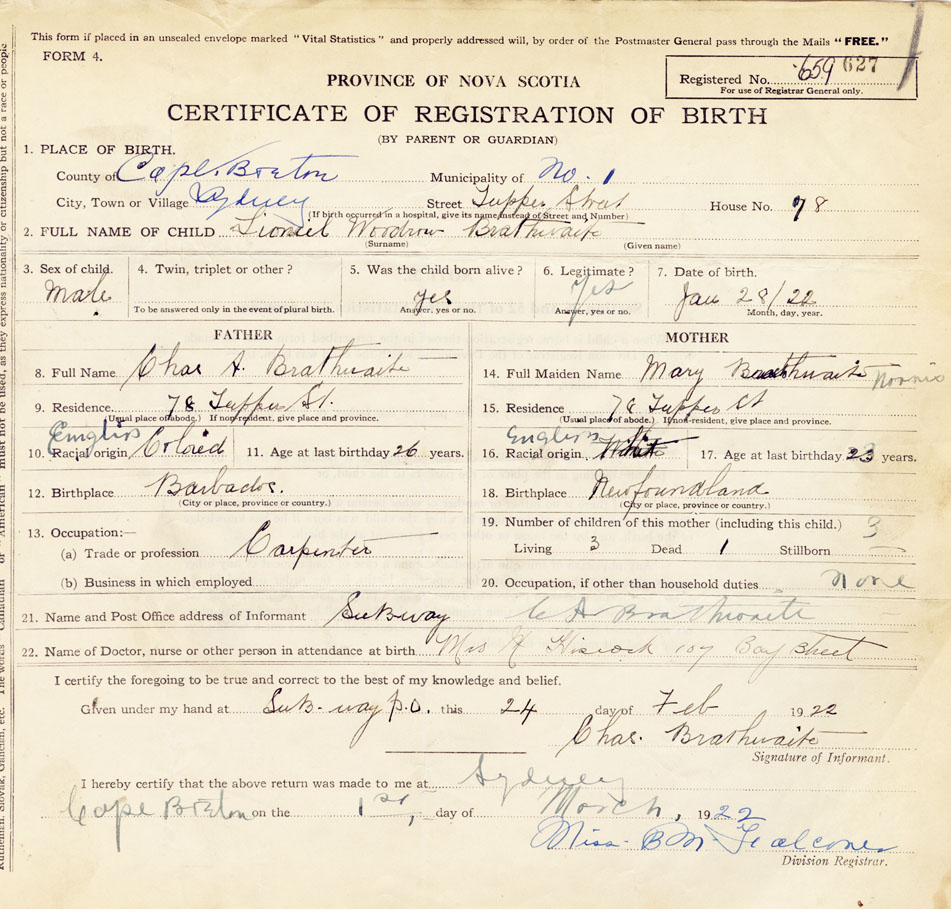 This form if placed in an unsealed envelope marked "Vital Statistics" and properly addressed will, by order of the Postmaster General pass through the Mails "FREE."
FORM 4.
Registered No. 659 627
For use of Registrar General only.
PROVINCE OF NOVA SCOTIA
CERTIFICATE OF REGISTRATION OF BIRTH
(BY PARENT OR GUARDIAN)
1. PLACE OF BIRTH.
County of Cape Breton Municipality of No. 1
City, Town or Village Sydney Street Tupper Street House No. 78
(If birth occurred in a hospital, give its name instead of Street and Number)
2. FULL NAME OF CHILD Lionel Woodrow Brathwaite
(Surname) (Given name)
3. Sex of child. 4. Twin, triplet or other? 5. Was the child born alive? 6. Legitimate? 7. Date of birth.
Male yes yes Jan 28/22
To be answered only in the event of plural birth. Answer, yes or no. Answer, yes or no. Month, day, year.
FATHER MOTHER
8. Full Name Chas A. Brathwaite 14. Full Maiden Name Mary Brathwaite
9. Residence 78 Tupper St. 15. Residence 78 Tupper St
(Usual place of abode.) If non-resident, give place and province. (Usual place of abode.) If non-resident, give place and province.
English English
10. Racial origin Colored 11. Age at last birthday 26 years. 16. Racial origin White 17. Age at last birthday 23 years.
12. Birthplace Barbados. 18. Birthplace Newfoundland
(City or place, province or country.) (City or place, province or country.)
13. Occupation:— 19. Number of children of this mother (including this child.) 3
(a) Trade or profession Carpenter Living 3 Dead 1 Stillborn —
(b) Business in which employed 20. Occupation, if other than household duties none
21. Name and Post Office address of Informant Subway C A Brathwaite
22. Name of Doctor, nurse or other person in attendance at birth Mrs H Hiscock 107 Bay Street
I certify the foregoing to be true and correct to the best of my knowledge and belief.
Given under my hand at Sub-way P.O. this 24 day of Feb 1922
Chas. Brathwaite
Signature of Informant.
I hereby certify that the above return was made to me at Sydney
Cape Breton on the 1st, day of March, 1922
Miss. B M. Falconer
Division Registrar.